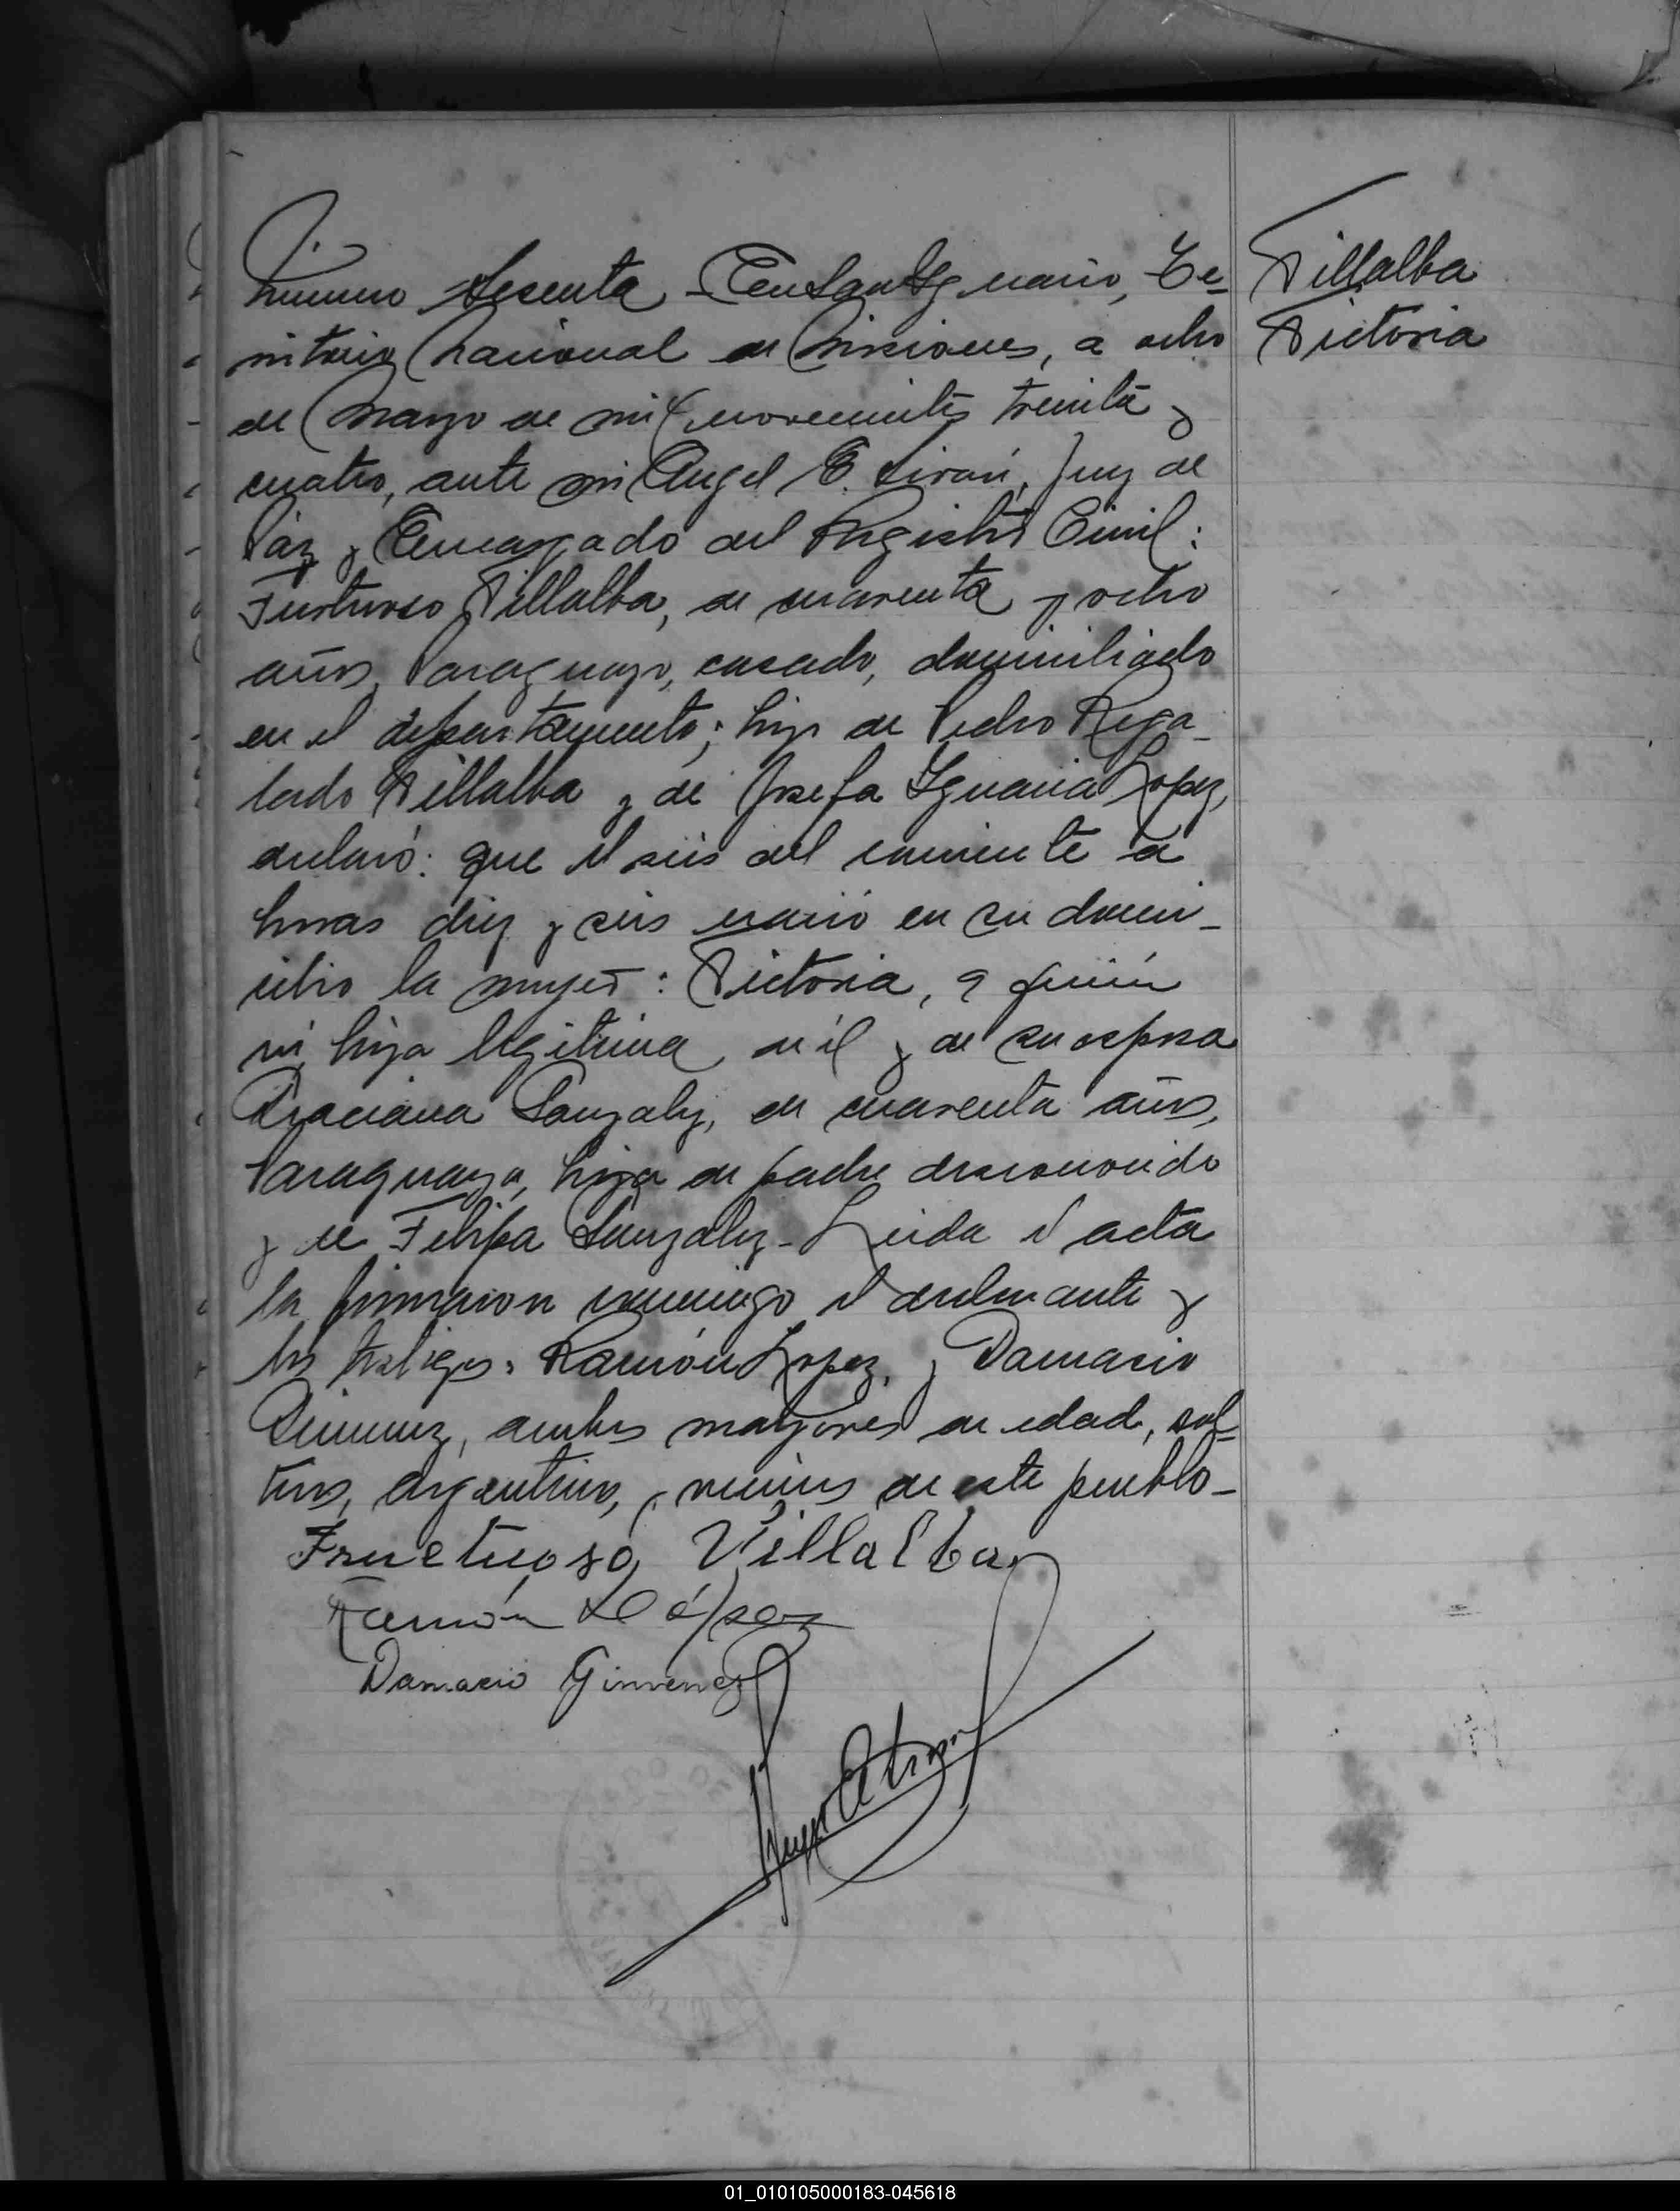 Villalba
Victoria
Número Sesenta - En San Ygnacio, Te-
rritorio Nacional de Misiones, a ocho
de Marzo de mil novecientos treinta y
cuatro, ante mi Angel E. Juez de
Páz y Encargado del Registro Civil:
Fructuoso Villalba, de cuarenta y ocho
años, Paraguayo, casado, domiciliado
en el departamento; hijo de Pedro Rega-
lado Villalba y de Josefa Ygnacia Lopez,
declaró: que el seis del corriente a
horas diez y seis nació en su domi-
cilio la mujer: Victoria, a quién
vi, hija legitima de él y de su esposa
Graciana Gonzalez, de cuarenta años,
Paraguaya, hija de padre desconocido
y de Felipa Gonzalez - Leida el acta
la firmaron conmigo el declarante y
los testigos: Ramón Lopez, y Damacio
Gimenez, ambos mayores de edad, sol-
teros, argentinos, vecinos de este pueblo -
Fructuoso Villalba
Ramón López
Damacio Gimenez
01_010105000183-045618